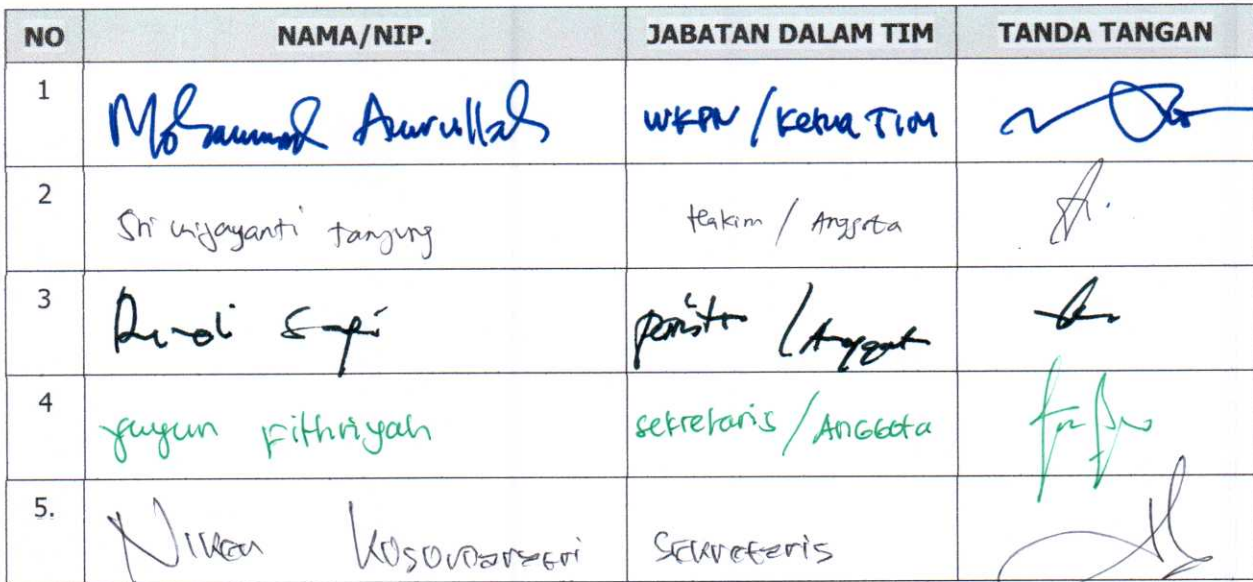 NO NAMA/NIP. JABATAN DALAM TIM TANDA TANGAN
1 Mohammad Amrullah WKPN / Ketua TIM
2 Sri wijayanti tanjung Hakim / Anggota
3 Panitera / Anggota
4 yuyun Fithriyah sekretaris / ANGGOTA
5. Niken Sekretaris